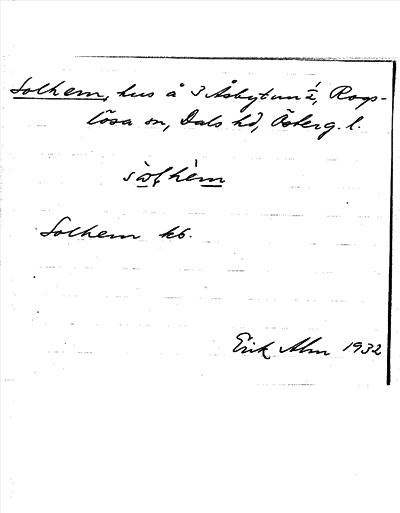 Solhem, hus å 3 Åsbytun 1/2, Rogs-
lösa sn, Dals hd, Österg. l.
Solhem kb.
Erik Alm 1932